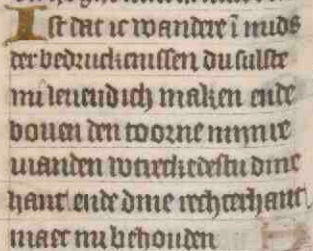 Ist dat ic wandere ī mids
der bedruckenissen. du sulste
mi leuendich maken ende
bouen den toorne mijnre
uianden wtreckedestu dine
hant ende dine rechterhant
maecte mi behouden